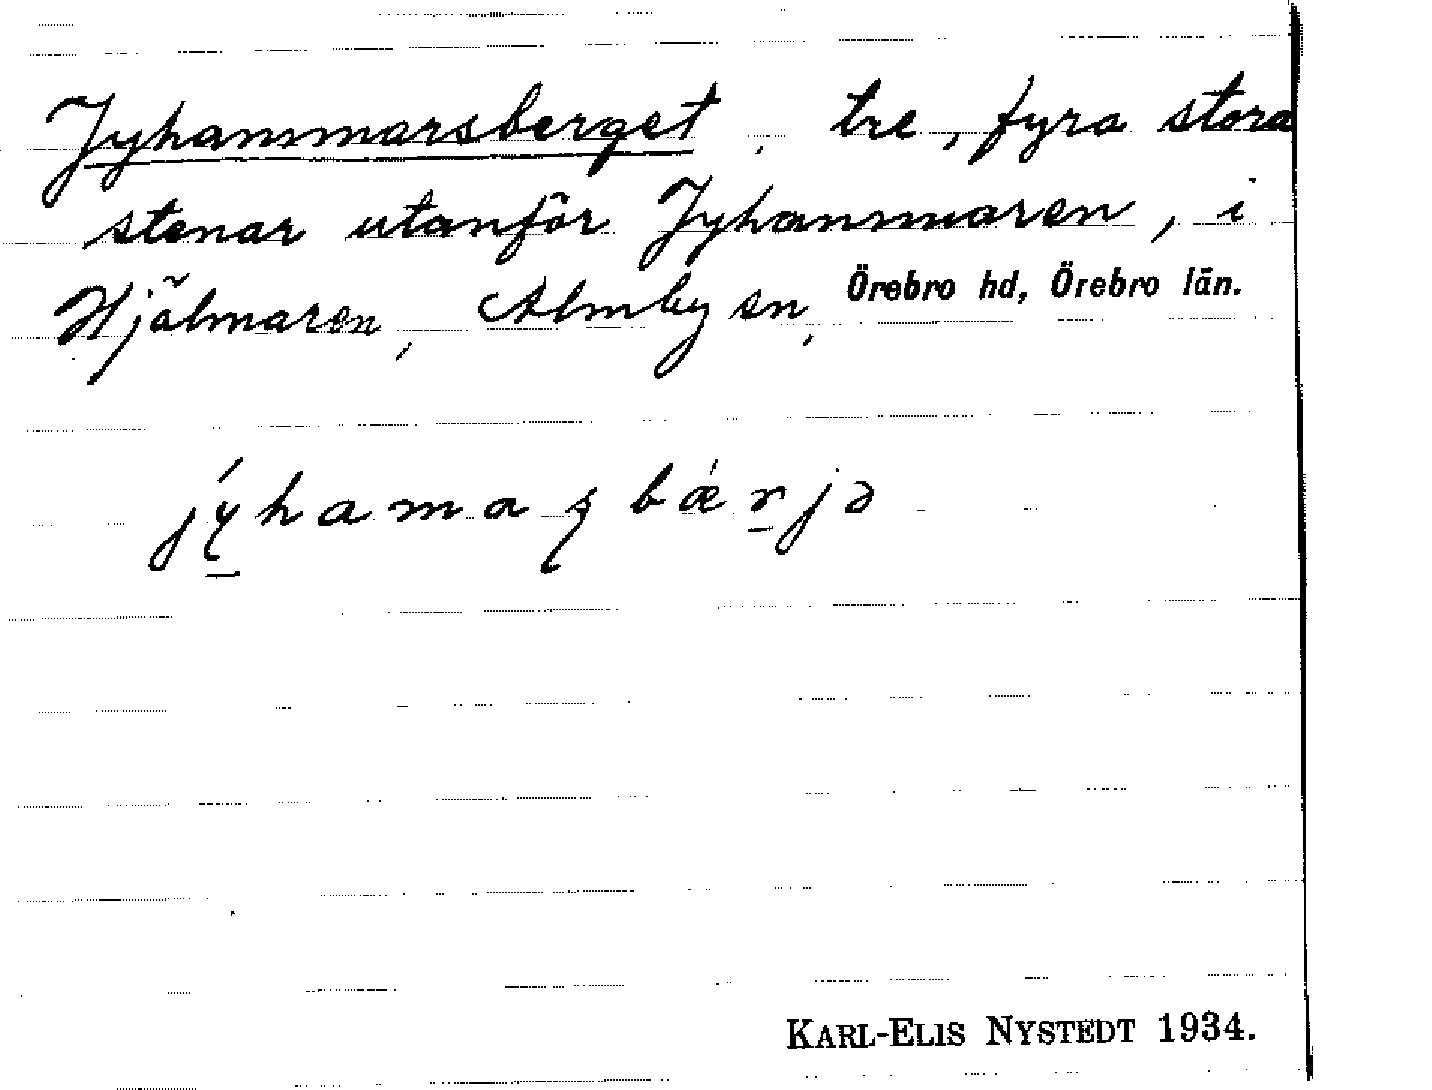 Jyhammarsberget, tre, fyra stora
stenar utanför Jyhammaren, i
Hjälmaren, Almby sn, Örebro hd, Örebro län.
jý̱hamaʂbǽṟjə
KARL-ELIS NYSTEDT 1934.